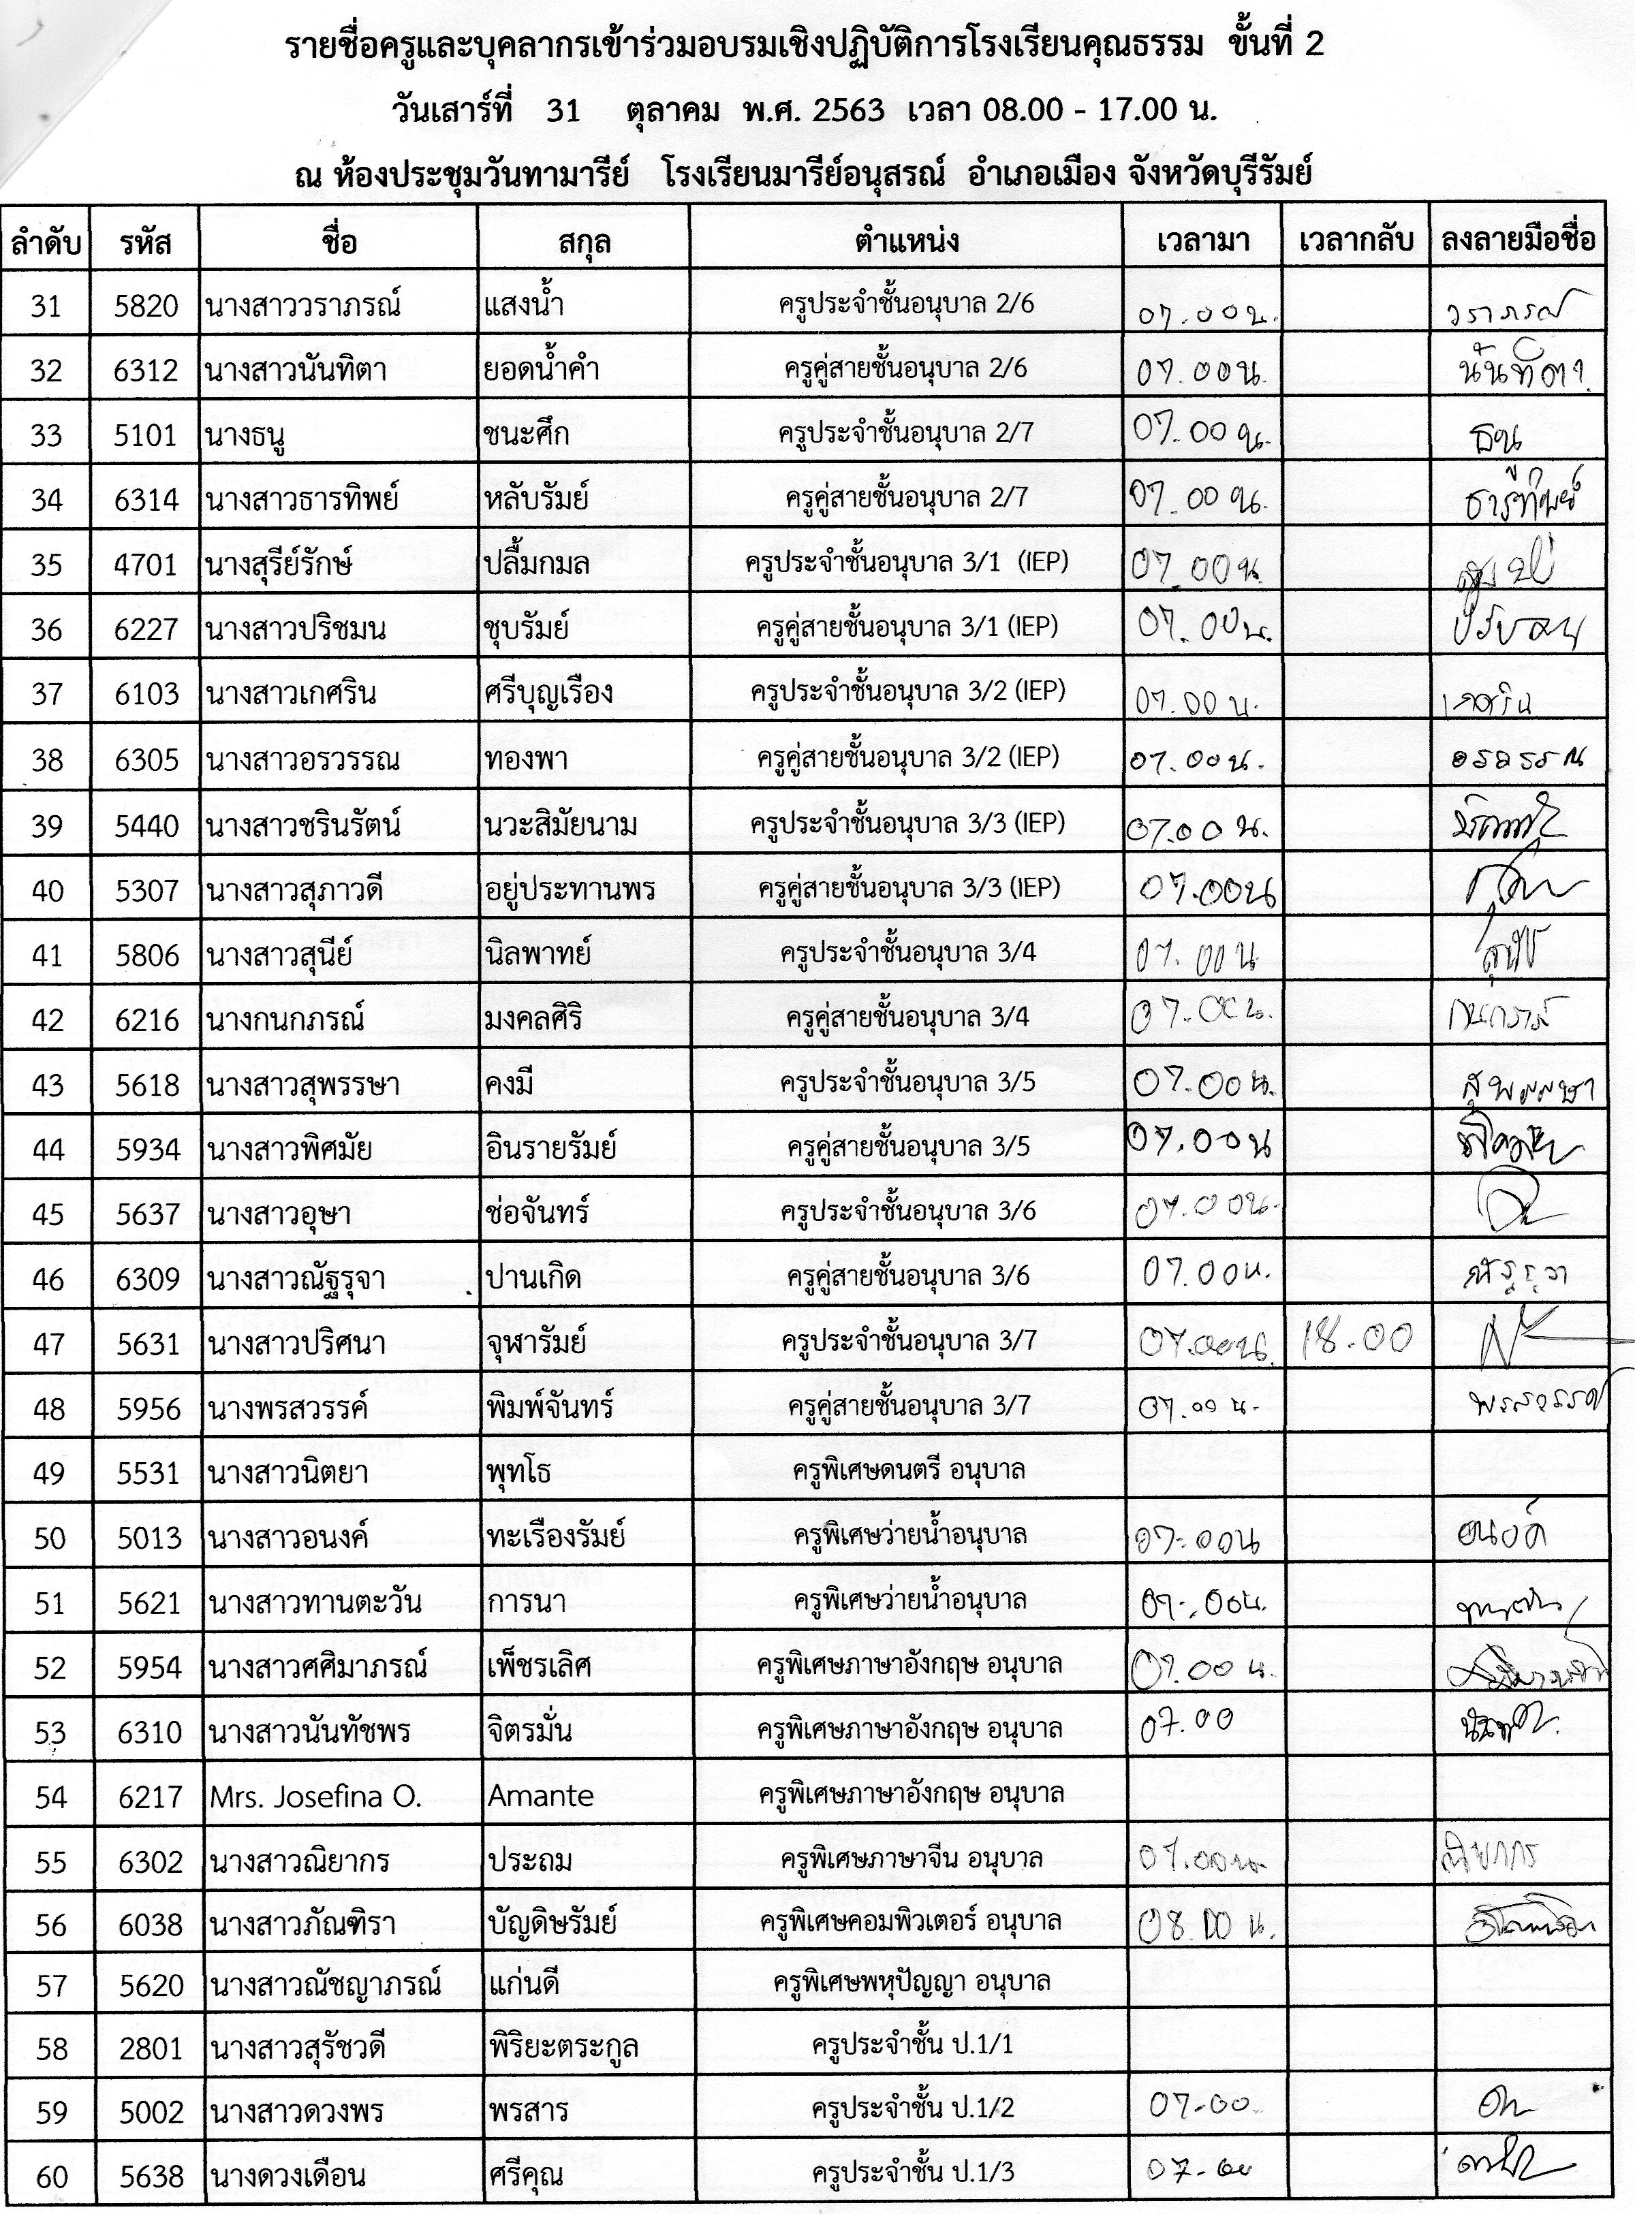 รายชื่อครูและบุคลากรเข้าร่วมอบรมเชิงปฏิบัติการโรงเรียนคุณธรรม ขั้นที่ 2
วันเสาร์ที่ 31 ตุลาคม พ.ศ. 2563 เวลา 08.00 - 17.00 น.
ณ ห้องประชุมวันทามารีย์ โรงเรียนมารีย์อนุสรณ์ อำเภอเมือง จังหวัดบุรีรัมย์
ลำดับ รหัส ชื่อ สกุล ตำแหน่ง เวลามา เวลากลับ ลงลายมือชื่อ
31 5820 นางสาววราภรณ์ แสงน้ำ ครูประจำชั้นอนุบาล 2/6 07.00น. วราภรณ์
32 6312 นางสาวนันทิตา ยอดน้ำคำ ครูคู่สายชั้นอนุบาล 2/6 07.00น. นันทิตา
33 5101 นางธนู ชนะศึก ครูประจำชั้นอนุบาล 2/7 07.00 น. ธนู
34 6314 นางสาวธารทิพย์ หลับรัมย์ ครูคู่สายชั้นอนุบาล 2/7 07.00 น. ธารทิพย์
35 4701 นางสุรีย์รักษ์ ปลื้มกมล ครูประจำชั้นอนุบาล 3/1 (IEP) 07.00 น.
36 6227 นางสาวปริชมน ชุบรัมย์ ครูคู่สายชั้นอนุบาล 3/1 (IEP) 07.00น. ปริชมน
37 6103 นางสาวเกศริน ศรีบุญเรือง ครูประจำชั้นอนุบาล 3/2 (IEP) 07.00 น. เกศริน
38 6305 นางสาวอรวรรณ ทองพา ครูคู่สายชั้นอนุบาล 3/2 (IEP) 07.00น. อรวรรณ
39 5440 นางสาวชรินรัตน์ นวะสิมัยนาม ครูประจำชั้นอนุบาล 3/3 (IEP) 07.00 น.
40 5307 นางสาวสุภาวดี อยู่ประทานพร ครูคู่สายชั้นอนุบาล 3/3 (IEP) 07.00น
41 5806 นางสาวสุนีย์ นิลพาทย์ ครูประจำชั้นอนุบาล 3/4 07.00น สุนีย์
42 6216 นางกนกภรณ์ มงคลศิริ ครูคู่สายชั้นอนุบาล 3/4 07.00น. กนกภรณ์
43 5618 นางสาวสุพรรษา คงมี ครูประจำชั้นอนุบาล 3/5 07.00น. สุพรรษา
44 5934 นางสาวพิศมัย อินรายรัมย์ ครูคู่สายชั้นอนุบาล 3/5 07.00น พิศมัย
45 5637 นางสาวอุษา ช่อจันทร์ ครูประจำชั้นอนุบาล 3/6 07.00น.
46 6309 นางสาวณัฐรุจา ปานเกิด ครูคู่สายชั้นอนุบาล 3/6 07.00น. ณัฐรุจา
47 5631 นางสาวปริศนา จุฬารัมย์ ครูประจำชั้นอนุบาล 3/7 07.00น. 18.00
48 5956 นางพรสวรรค์ พิมพ์จันทร์ ครูคู่สายชั้นอนุบาล 3/7 07.00 น. พรสวรรค์
49 5531 นางสาวนิตยา พุทโธ ครูพิเศษดนตรี อนุบาล
50 5013 นางสาวอนงค์ ทะเรืองรัมย์ ครูพิเศษว่ายน้ำอนุบาล 07.00น อนงค์
51 5621 นางสาวทานตะวัน การนา ครูพิเศษว่ายน้ำอนุบาล 07.00น.
52 5954 นางสาวศศิมาภรณ์ เพ็ชรเลิศ ครูพิเศษภาษาอังกฤษ อนุบาล 07.00 น.
53 6310 นางสาวนันทัชพร จิตรมั่น ครูพิเศษภาษาอังกฤษ อนุบาล 07.00
54 6217 Mrs. Josefina O. Amante ครูพิเศษภาษาอังกฤษ อนุบาล
55 6302 นางสาวณิยากร ประถม ครูพิเศษภาษาจีน อนุบาล 07.00น. ณิยากร
56 6038 นางสาวภัณฑิรา บัญดิษรัมย์ ครูพิเศษคอมพิวเตอร์ อนุบาล 08.00 น.
57 5620 นางสาวณัชญาภรณ์ แก่นดี ครูพิเศษพหุปัญญา อนุบาล
58 2801 นางสาวสุรัชวดี พิริยะตระกูล ครูประจำชั้น ป.1/1
59 5002 นางสาวดวงพร พรสาร ครูประจำชั้น ป.1/2 07.00
60 5638 นางดวงเดือน ศรีคุณ ครูประจำชั้น ป.1/3 07.00